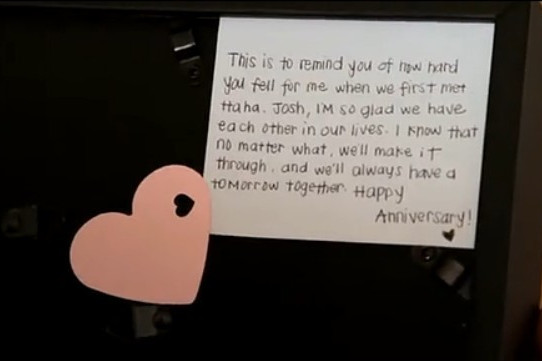 This is to remind you of how hard
you fell for me when we first met
Haha. Josh, I'm so glad we have
each other in our lives. I know that
no matter what, we'll make it
through. and we'll always have a
tomorrow together. Happy
Anniversary!